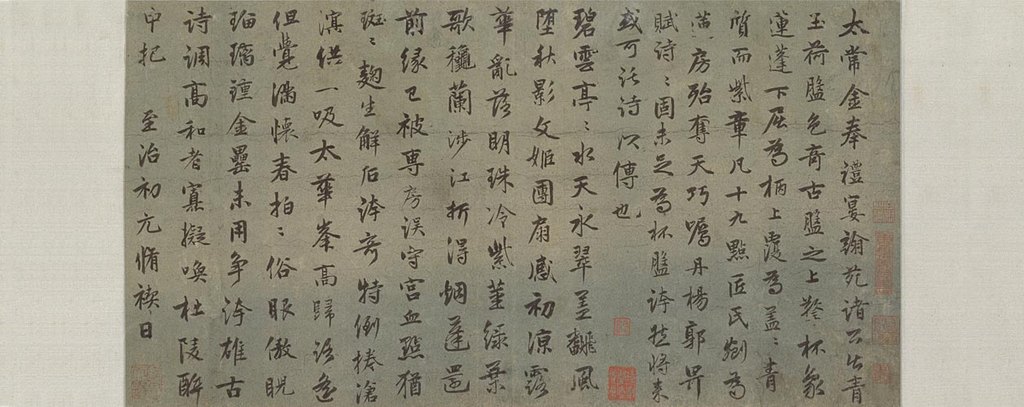 太常金奉禮宴翰苑諸公出青
玉荷盤色奇古盤之上盤杯象
蓮蓬下屈為柄上覆為蓋蓋青
質而紫章凡十九點匠氏劀為
蓮房殆奪天巧囑丹楊郭畀
賦詩詩固未足為杯盤誇然將來
或可託詩以傳也
碧雲亭亭水天永翠蓋翻風
墮秋影文姬團扇感初涼露
華亂落明珠冷紫莖綠葉
歌穠蘭涉江折得蜩蓬還
前緣已被專房誤守宮血點猶
斑斑麴生解后誇奇特倒捲滄
溟供一吸太華峯高歸路遙
但覺滿懷春拍拍俗眼傲睨
瑙璃鍾金罍未用爭誇雄古
詩調高和者寡擬喚杜陵酔
中把 至治初元脩禊日